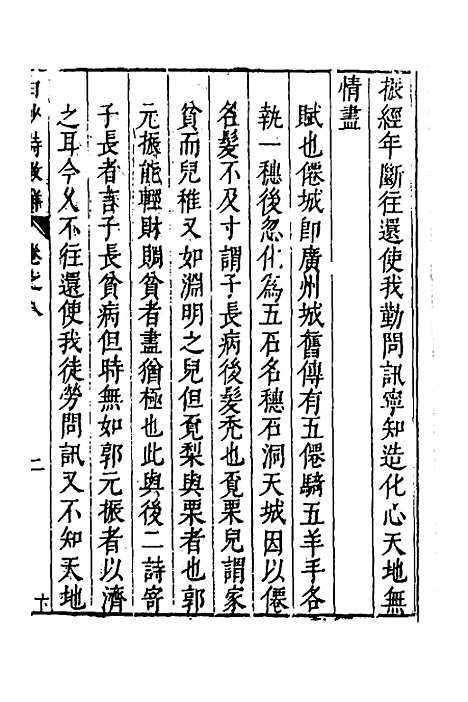 振經年斷往還使我勤問訊寧知造化心天地無
情盡
賦也僊城卽廣州城舊傳有五僊騎五羊手各
執一穗後忽化為五石名穗石洞天城因以僊
名髮不及寸謂子長病後髮禿也覔栗兒謂家
貧而兒稚又如淵明之兒但覔梨與栗者也郭
元振能輕財賙貧者盡猶極也此與後二詩寄
子長者言子長貧病但時無如郭元振者以濟
之耳今乆不往還使我徒勞問訊又不知天地
白沙詩教解 卷之八 二